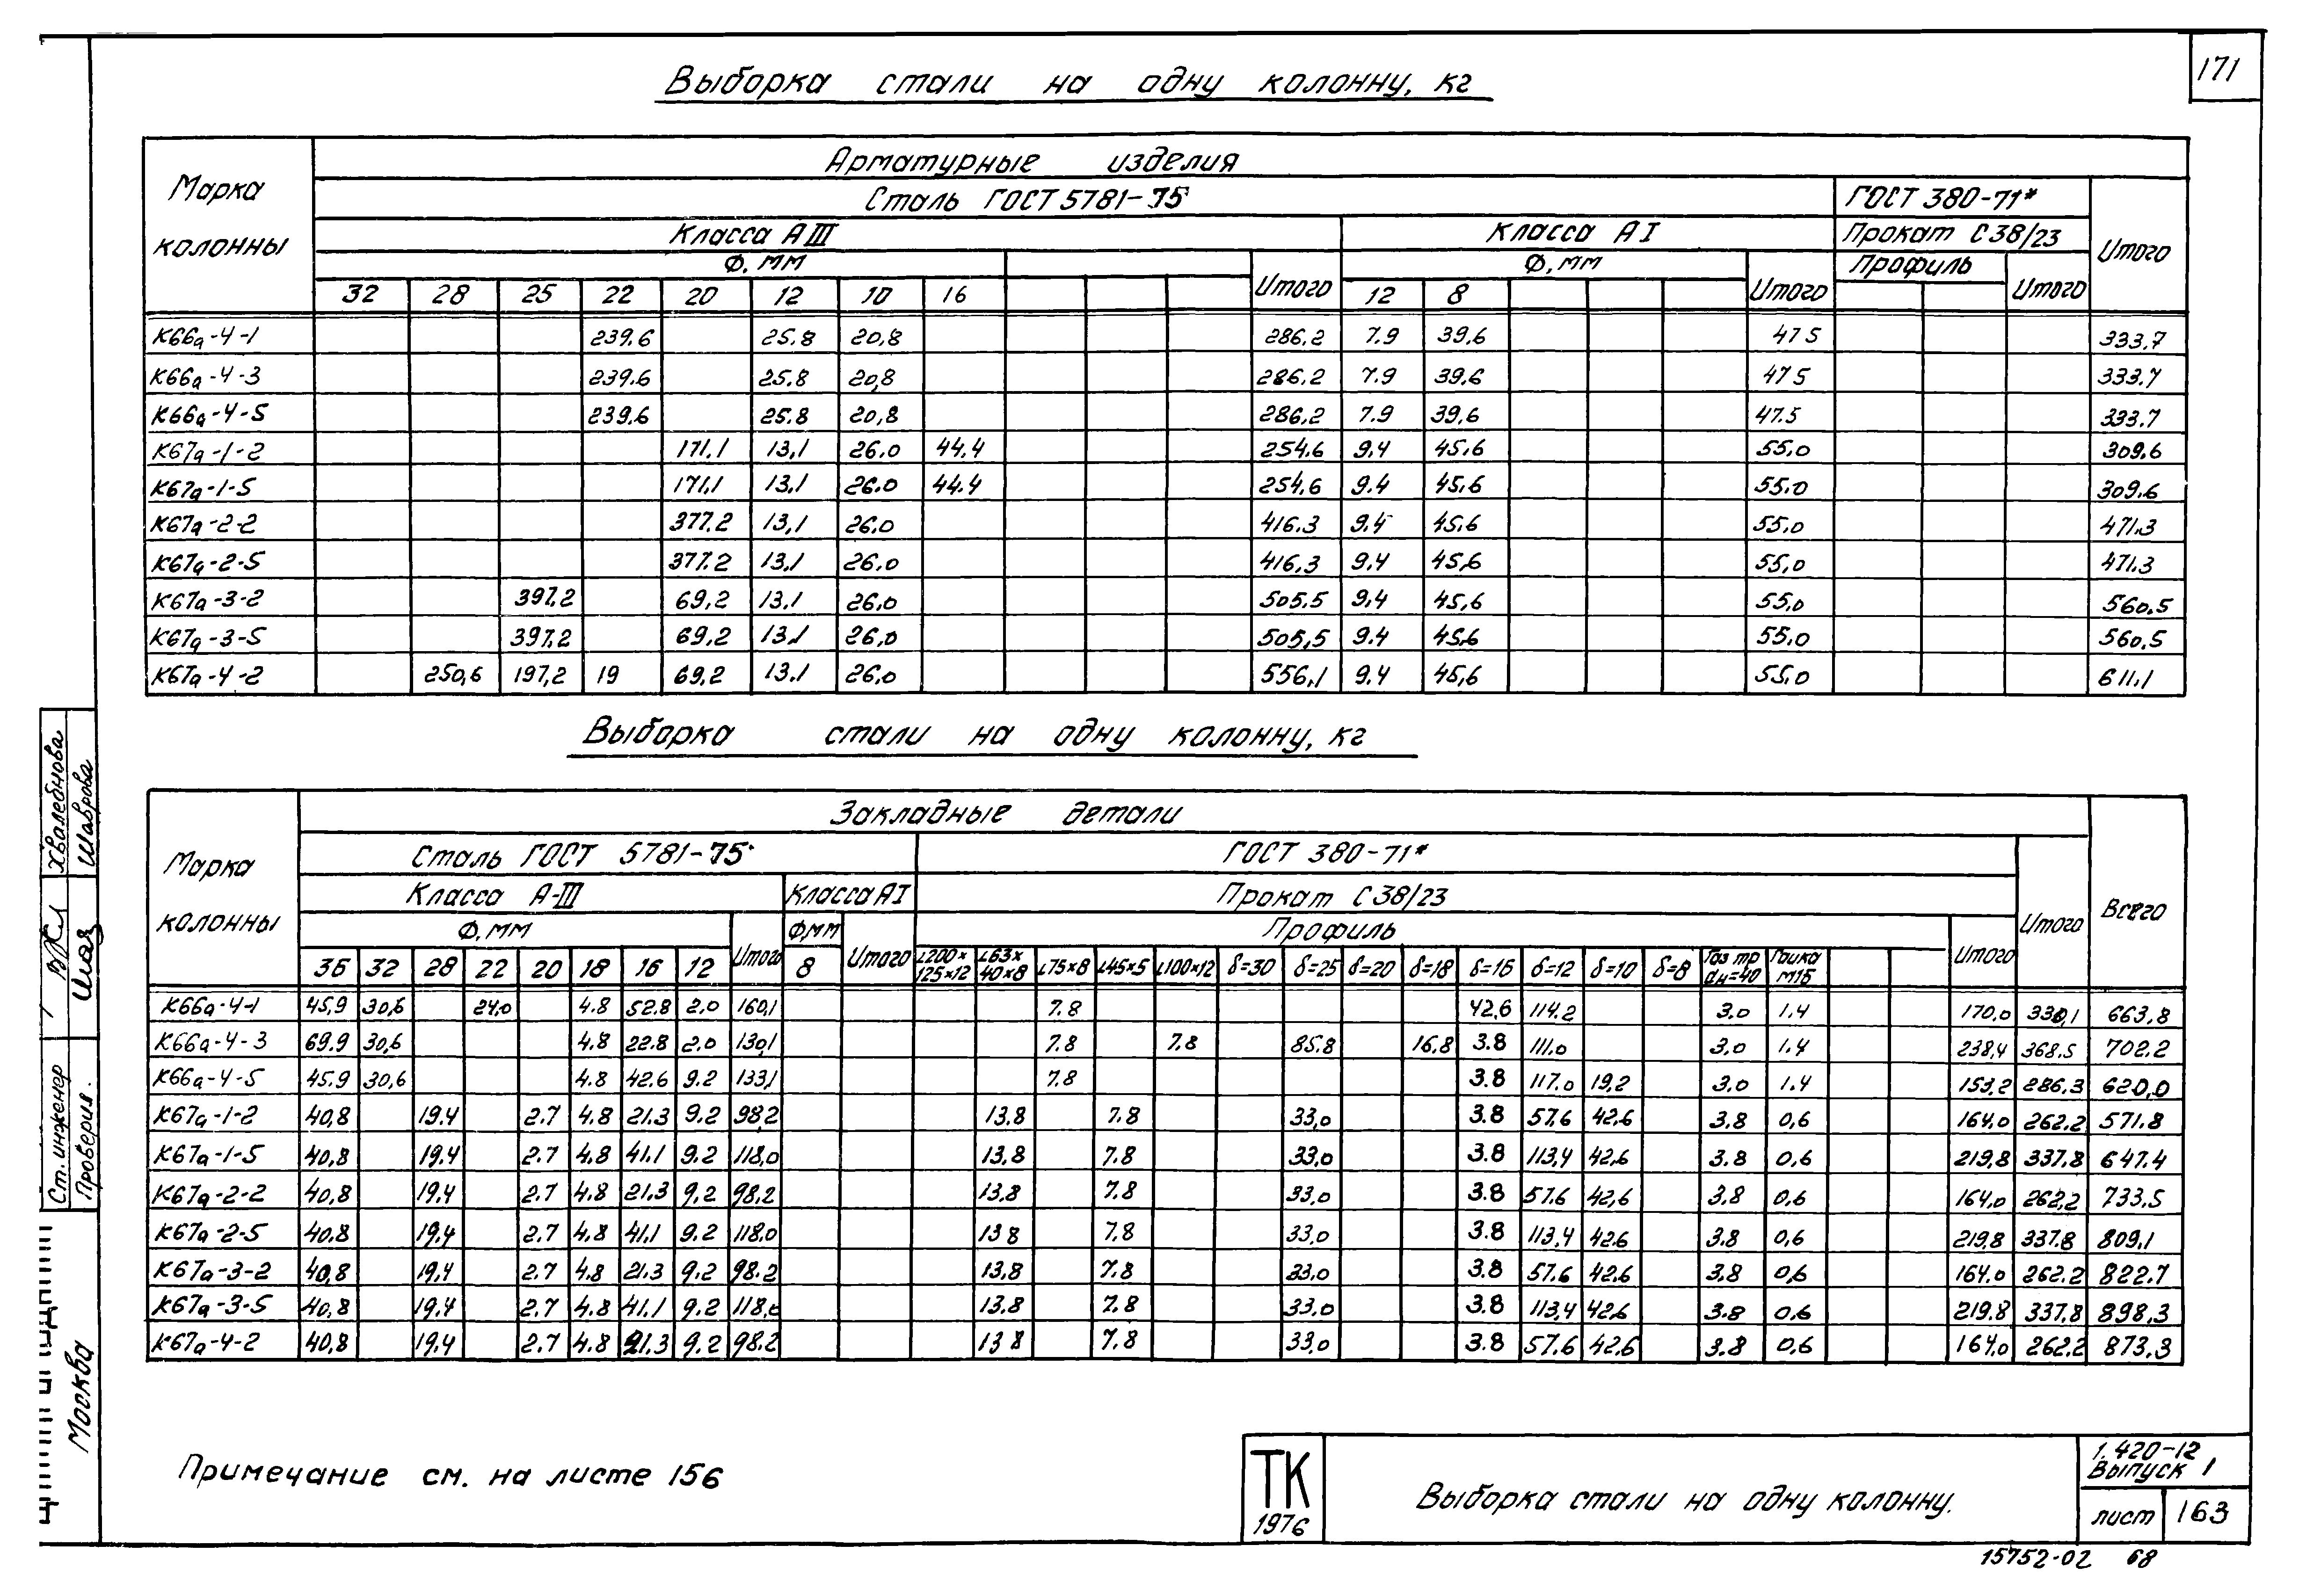 171
Выборка стали на одну колонну, кг
Марка колонны
Арматурные изделия
Сталь ГОСТ 5781-75
ГОСТ 380-71*
Итого
Класса АIII
Класса АI
Прокат С38/23
Ф, мм
Итого
Ф, мм
Итого
Профиль
Итого
32 28 25 22 20 12 10 16 12 8
К66а-4-1 239.6 25.8 20,8 286,2 7.9 39,6 47 5 333.7
К66а-4-3 239.6 25.8 20,8 286.2 7.9 39.6 47 5 333.7
К66а-4-5 239.6 25.8 20,8 286,2 7.9 39,6 47.5 333.7
К67а-1-2 171,1 13,1 26.0 44,4 254.6 9.4 45.6 55,0 309.6
К67а-1-5 171.1 13,1 26.0 44.4 254,6 9.4 45.6 55.0 309.6
К67а-2-2 377.2 13,1 26.0 416.3 9.4 45.6 55,0 471.3
К67а-2-5 377.2 13.1 26.0 416,3 9.4 45,6 55,0 471.3
К67а-3-2 397.2 69,2 13.1 26,0 505,5 9.4 45,6 55,0 560,5
К67а-3-5 397.2 69.2 13.1 26,0 505,5 9.4 45.6 55.0 560.5
К67а-4-2 250,6 197,2 19 69.2 13.1 26,0 556,1 9.4 45,6 55.0 611.1
Выборка стали на одну колонну, кг
Марка колонны
Закладные детали
Всего
Сталь ГОСТ 5781-75
ГОСТ 380-71*
Итого
Класса А-III
Класса АI
Прокат С38/23
Ф, мм
Итого
Ф,мм
Итого
Профиль
Итого
36 32 28 22 20 18 16 12 8 L200×125×12 L63×40×8 L75×8 L45×5 L100×12 δ=30 δ=25 δ=20 δ=18 δ=16 δ=12 δ=10 δ=8 Газ тр dн=40 Гайка М16
К66а-4-1 45,9 30,6 24,0 4.8 52.8 2.0 160,1 7.8 42,6 114.2 3.0 1.4 170,0 330,1 663,8
К66а-4-3 69.9 30,6 4.8 22.8 2.0 130,1 7.8 7.8 85.8 16.8 3.8 111.0 3,0 1.4 238,4 368.5 702.2
К66а-4-5 45.9 30,6 4.8 42.6 9.2 133,1 7.8 3.8 117.0 19,2 3.0 1.4 153,2 286,3 620,0
К67а-1-2 40,8 19.4 2.7 4.8 21.3 9.2 98,2 13.8 7.8 33,0 3.8 57.6 42,6 3.8 0,6 164,0 262.2 571.8
К67а-1-5 40,8 19.4 2.7 4.8 41.1 9.2 118,0 13,8 7.8 33,0 3.8 113,4 42,6 3.8 0,6 219,8 337.8 647.4
К67а-2-2 40,8 19.4 2.7 4.8 21.3 9,2 98,2 13,8 7.8 33,0 3.8 57.6 42,6 3,8 0,6 164,0 262,2 733.5
К67а-2-5 40,8 19.4 2.7 4.8 41,1 9.2 118,0 13 8 7.8 33,0 3.8 113,4 42.6 3.8 0,6 219,8 337.8 809,1
К67а-3-2 40,8 19,4 2.7 4.8 21.3 9.2 98.2 13,8 7.8 33,0 3.8 57.6 42,6 3.8 0,6 164.0 262.2 822.7
К67а-3-5 40,8 19,4 2.7 4.8 41.1 9.2 118,0 13.8 7.8 33,0 3.8 113,4 42,6 3.8 0,6 219.8 337,8 898,3
К67а-4-2 40,8 19.4 2.7 4.8 21.3 9.2 98.2 13 8 7.8 33,0 3.8 57.6 42,6 3.8 0,6 164,0 262.2 873.3
Примечание см. на листе 156
ТК
1976
Выборка стали на одну колонну.
1.420-12
Выпуск 1
лист 163
15752-02 68
Ст. инженер Хвалебнова
Проверил. Шаврова
Москва